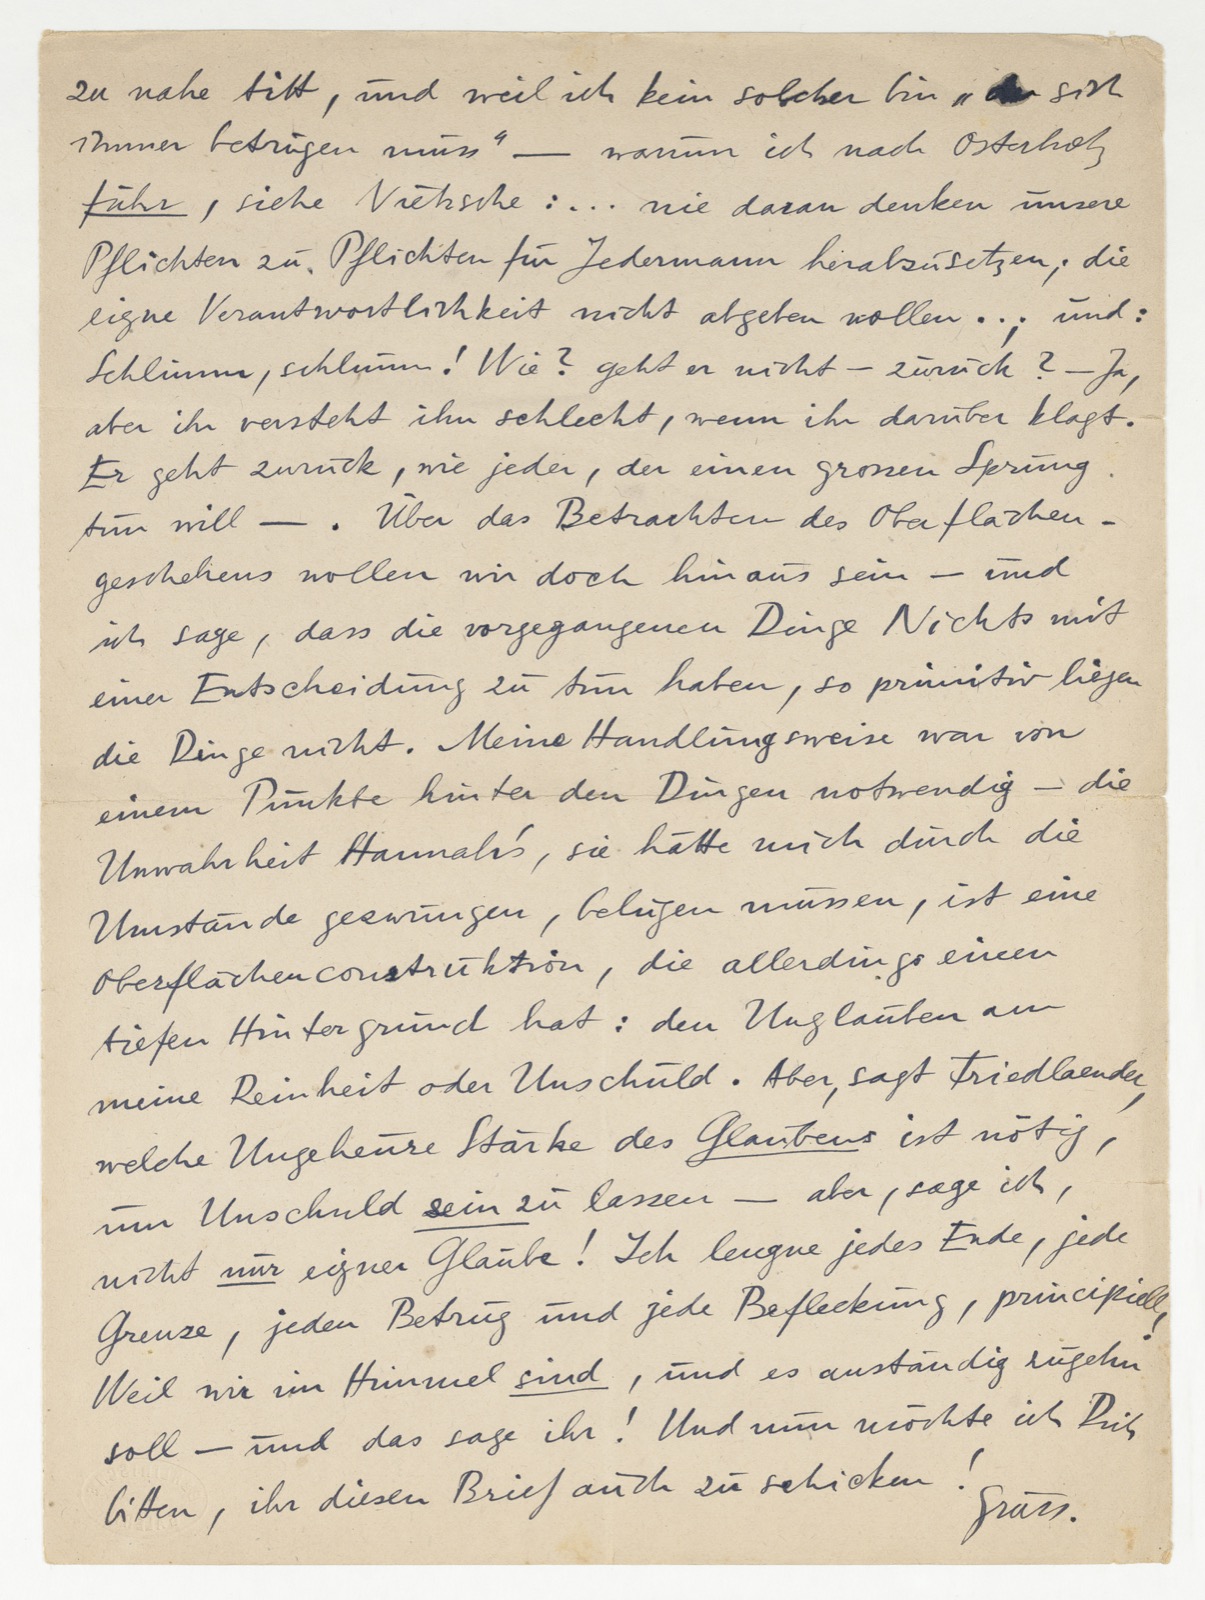 zu nahe tritt, und weil ich kein solcher bin „der sich
immer betrügen muss" — warum ich nach Osterholz
fuhr, siehe Nietzsche: ... nie daran denken unsere
Pflichten zu Pflichten für Jedermann herabzusetzen; die
eigne Verantwortlichkeit nicht abgeben wollen ..; und:
Schlimm, schlimm! Wie? geht er nicht – zurück? – Ja,
aber ihr versteht ihn schlecht, wenn ihr darüber klagt.
Er geht zurück, wie jeder, der einen grossen Sprung
tun will — . Über das Betrachten des Oberflächen-
geschehens wollen wir doch hinaus sein – und
ich sage, dass die vorgegangenen Dinge Nichts mit
einer Entscheidung zu tun haben, so primitiv liegen
die Dinge nicht. Meine Handlungsweise war von
einem Punkte hinter den Dingen notwendig – die
Unwahrheit Hannah's, sie hätte mich durch die
Umstände gezwungen, belügen müssen, ist eine
Oberflächenconstruktion, die allerdings einen
tiefen Hintergrund hat: den Unglauben an
meine Reinheit oder Unschuld. Aber, sagt Friedlaender,
welche Ungeheure Stärke des Glaubens ist nötig,
um Unschuld sein zu lassen — aber, sage ich,
nicht nur eigner Glaube! Ich leugne jedes Ende, jede
Grenze, jeden Betrug und jede Befleckung, principiell!
Weil wir im Himmel sind, und es anständig zugehn
soll – und das sage ihr! Und nun möchte ich Dich
bitten, ihr diesen Brief auch zu schicken!
Gruss.